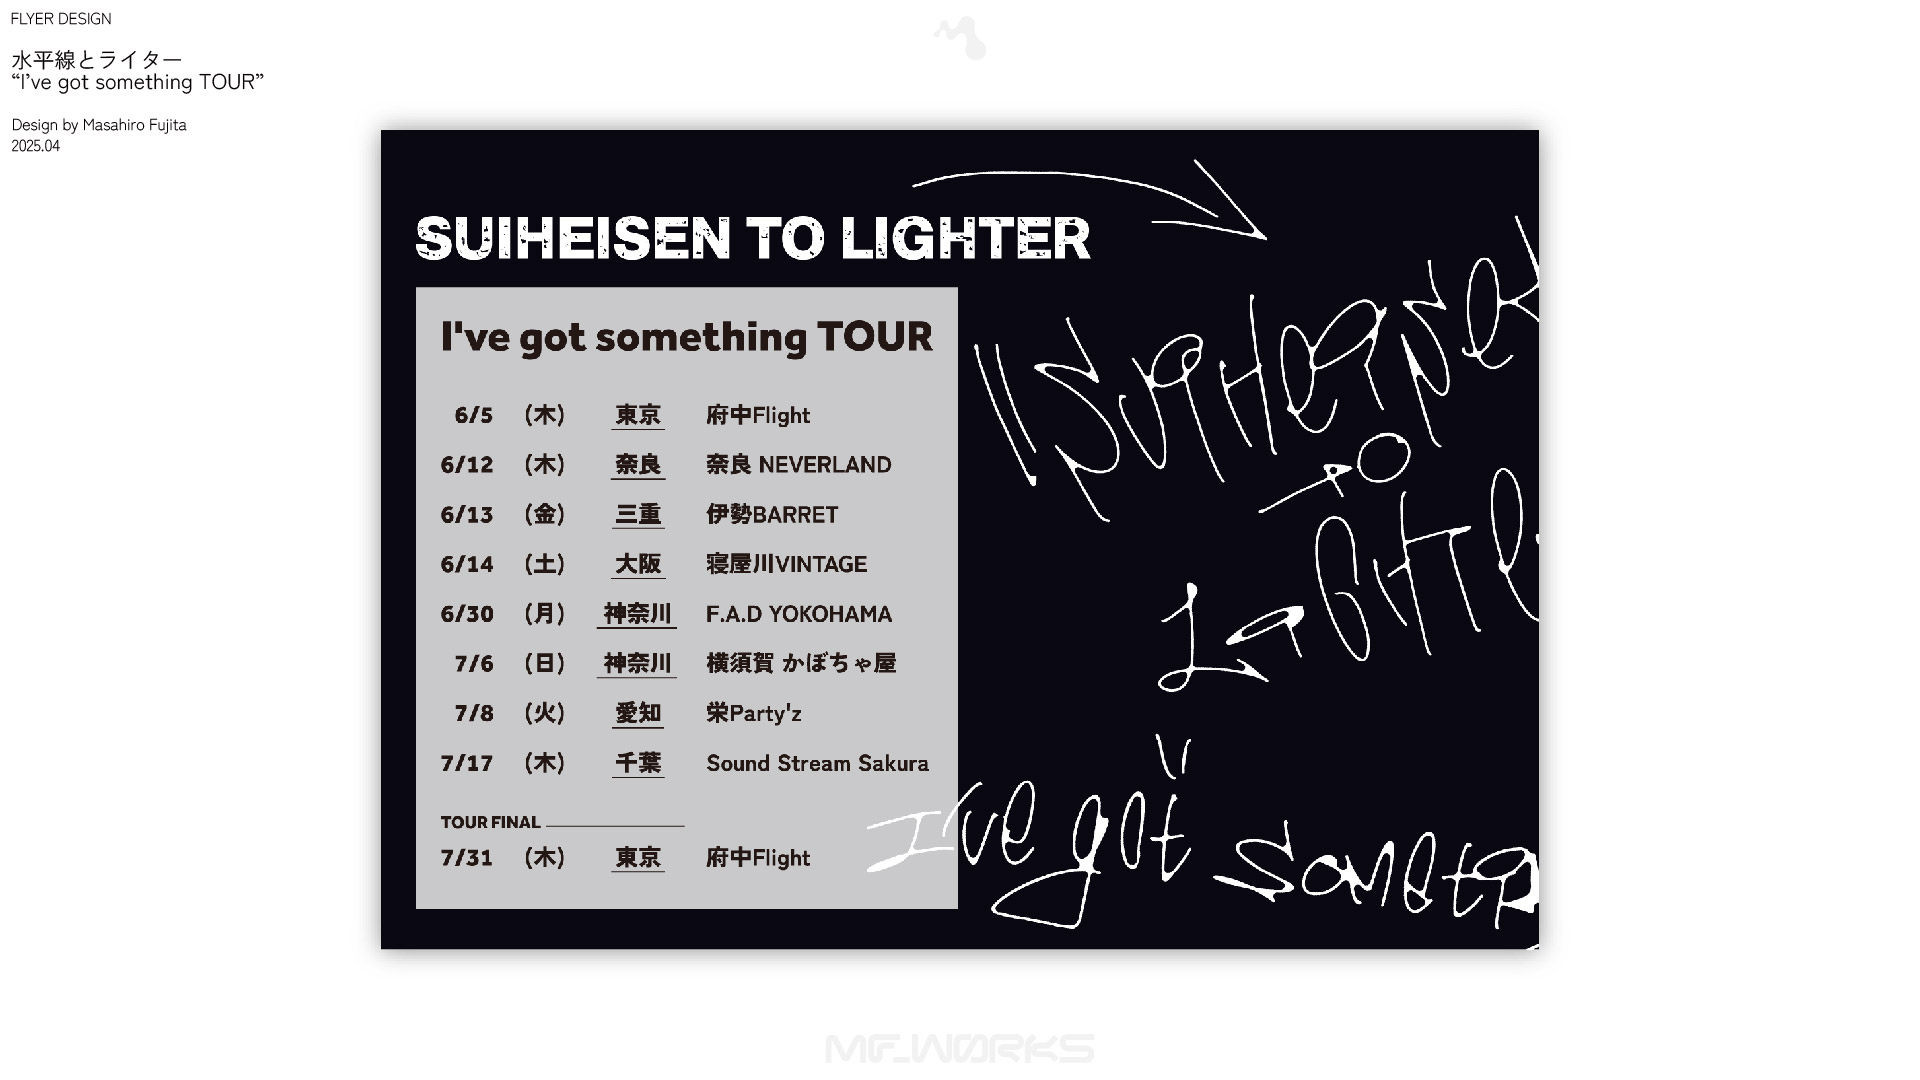 FLYER DESIGN
水平線とライター
“I’ve got something TOUR”
Design by Masahiro Fujita
2025.04
SUIHEISEN TO LIGHTER
I've got something TOUR
6/5 (木) 東京 府中Flight
6/12 (木) 奈良 奈良 NEVERLAND
6/13 (金) 三重 伊勢BARRET
6/14 (土) 大阪 寝屋川VINTAGE
6/30 (月) 神奈川 F.A.D YOKOHAMA
7/6 (日) 神奈川 横須賀 かぼちゃ屋
7/8 (火) 愛知 栄Party'z
7/17 (木) 千葉 Sound Stream Sakura
TOUR FINAL
7/31 (木) 東京 府中Flight
TO
I've got
MF_WORKS